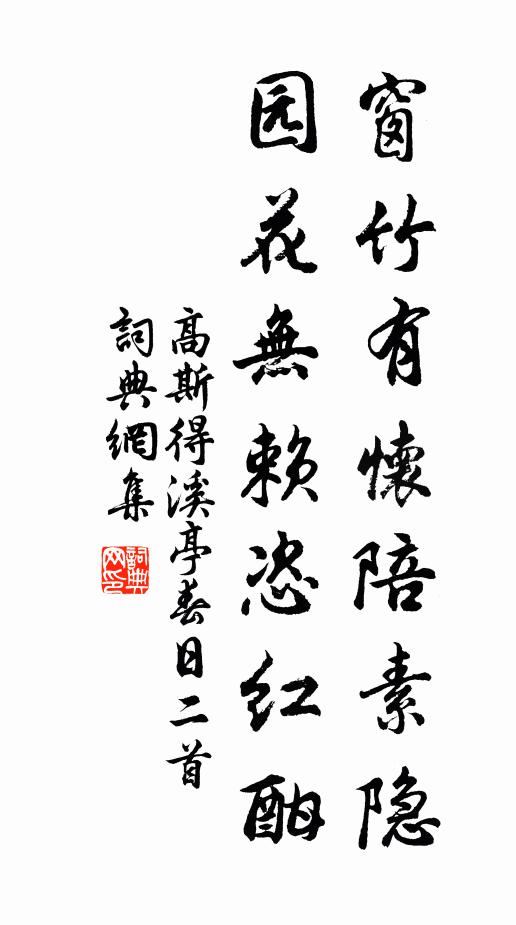 窗竹有懷陪素隐
园花無赖恣红酣
高斯得溪亭春日二首
詞典網集
詞典网印